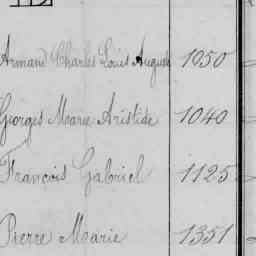 Armand Charles Louis Auguste 1050
Georges Marie Aristide 1040
François Gabriel 1125
Pierre Marie 1351